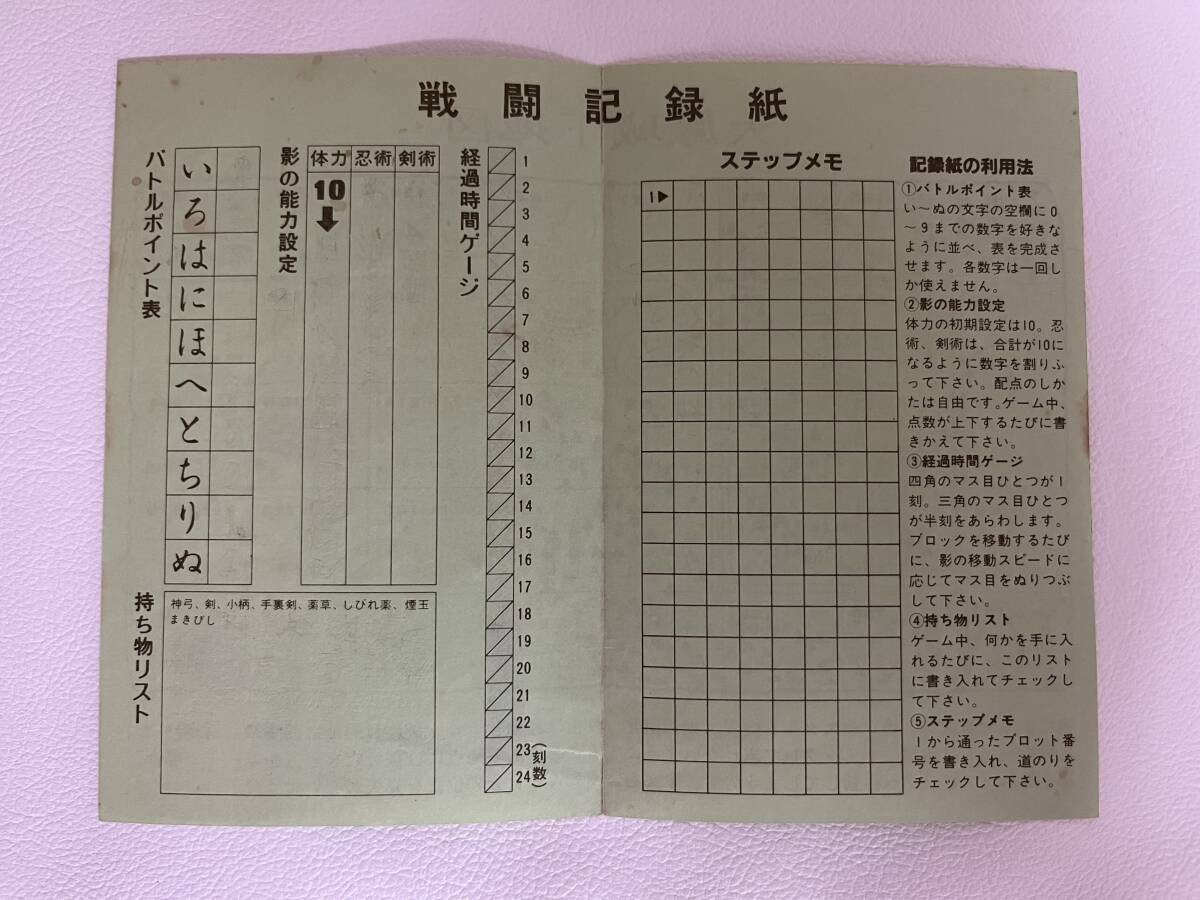 戦闘記録紙
バトルポイント表
い
ろ
は
に
ほ
へ
と
ち
り
ぬ
影の能力設定
体力 忍術 剣術
10
経過時間ゲージ
1
2
3
4
5
6
7
8
9
10
11
12
13
14
15
16
17
18
19
20
21
22
23
24
(刻数)
持ち物リスト
神弓、剣、小柄、手裏剣、薬草、しびれ薬、煙玉
まきびし
ステップメモ
1▶
記録紙の利用法
①バトルポイント表
い〜ぬの文字の空欄に0
〜9までの数字を好きな
ように並べ、表を完成さ
せます。各数字は一回し
か使えません。
②影の能力設定
体力の初期設定は10。忍
術、剣術は、合計が10に
なるように数字を割りふ
って下さい。配点のしか
たは自由です。ゲーム中、
点数が上下するたびに書
きかえて下さい。
③経過時間ゲージ
四角のマス目ひとつが1
刻。三角のマス目ひとつ
が半刻をあらわします。
ブロックを移動するたび
に、影の移動スピードに
応じてマス目をぬりつぶ
して下さい。
④持ち物リスト
ゲーム中、何かを手に入
れるたびに、このリスト
に書き入れてチェックし
て下さい。
⑤ステップメモ
1から通ったブロット番
号を書き入れ、道のりを
チェックして下さい。